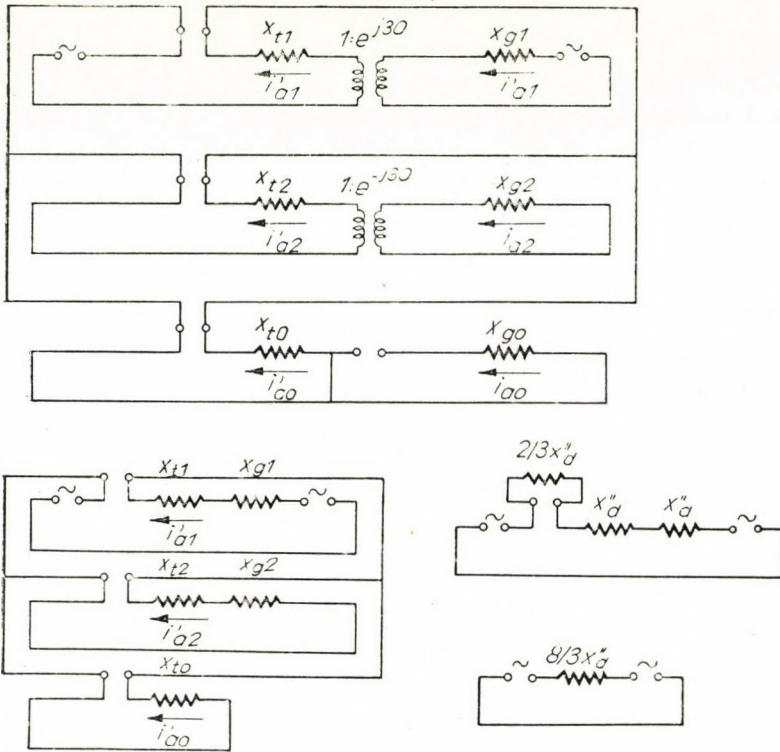 x_t1 1:e^j30 x_g1
i'_a1 i'_a1
x_t2 1:e^-j30 x_g2
i'_a2 i_a2
x_t0 x_go
i'_ao i_ao
x_t1 x_g1
i'_a1
x_t2 x_g2
i'_a2
x_to
i'_ao
2/3x"_d
x"_d x"_d
8/3x"_d